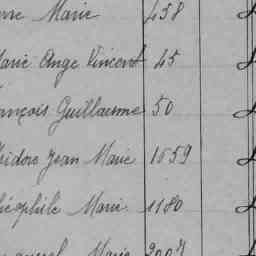 Marie 458
Marie Ange Vincent 45
ançois Guillaume 50
sidore Jean Marie 1659
héophile Marie 1180
Marie 2003